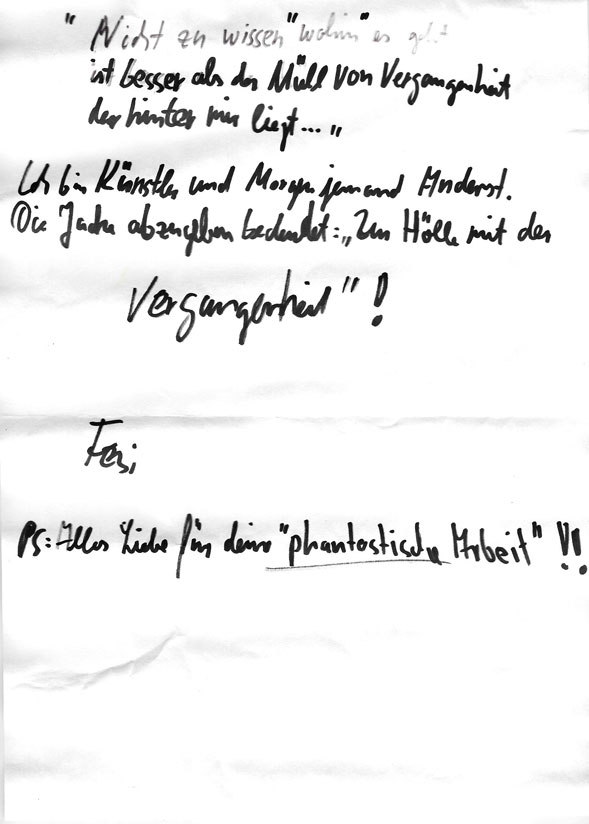 " Nicht zu wissen "wohin" es geht
ist besser als der Müll von Vergangenheit
der hinter mir liegt... "
Ich bin Künstler und Morgen jemand Anderst.
Die Jacke abzugeben bedeutet: „Zur Hölle mit der
Vergangenheit" !
PS: Alles Liebe für deine "phantastische Arbeit" !!